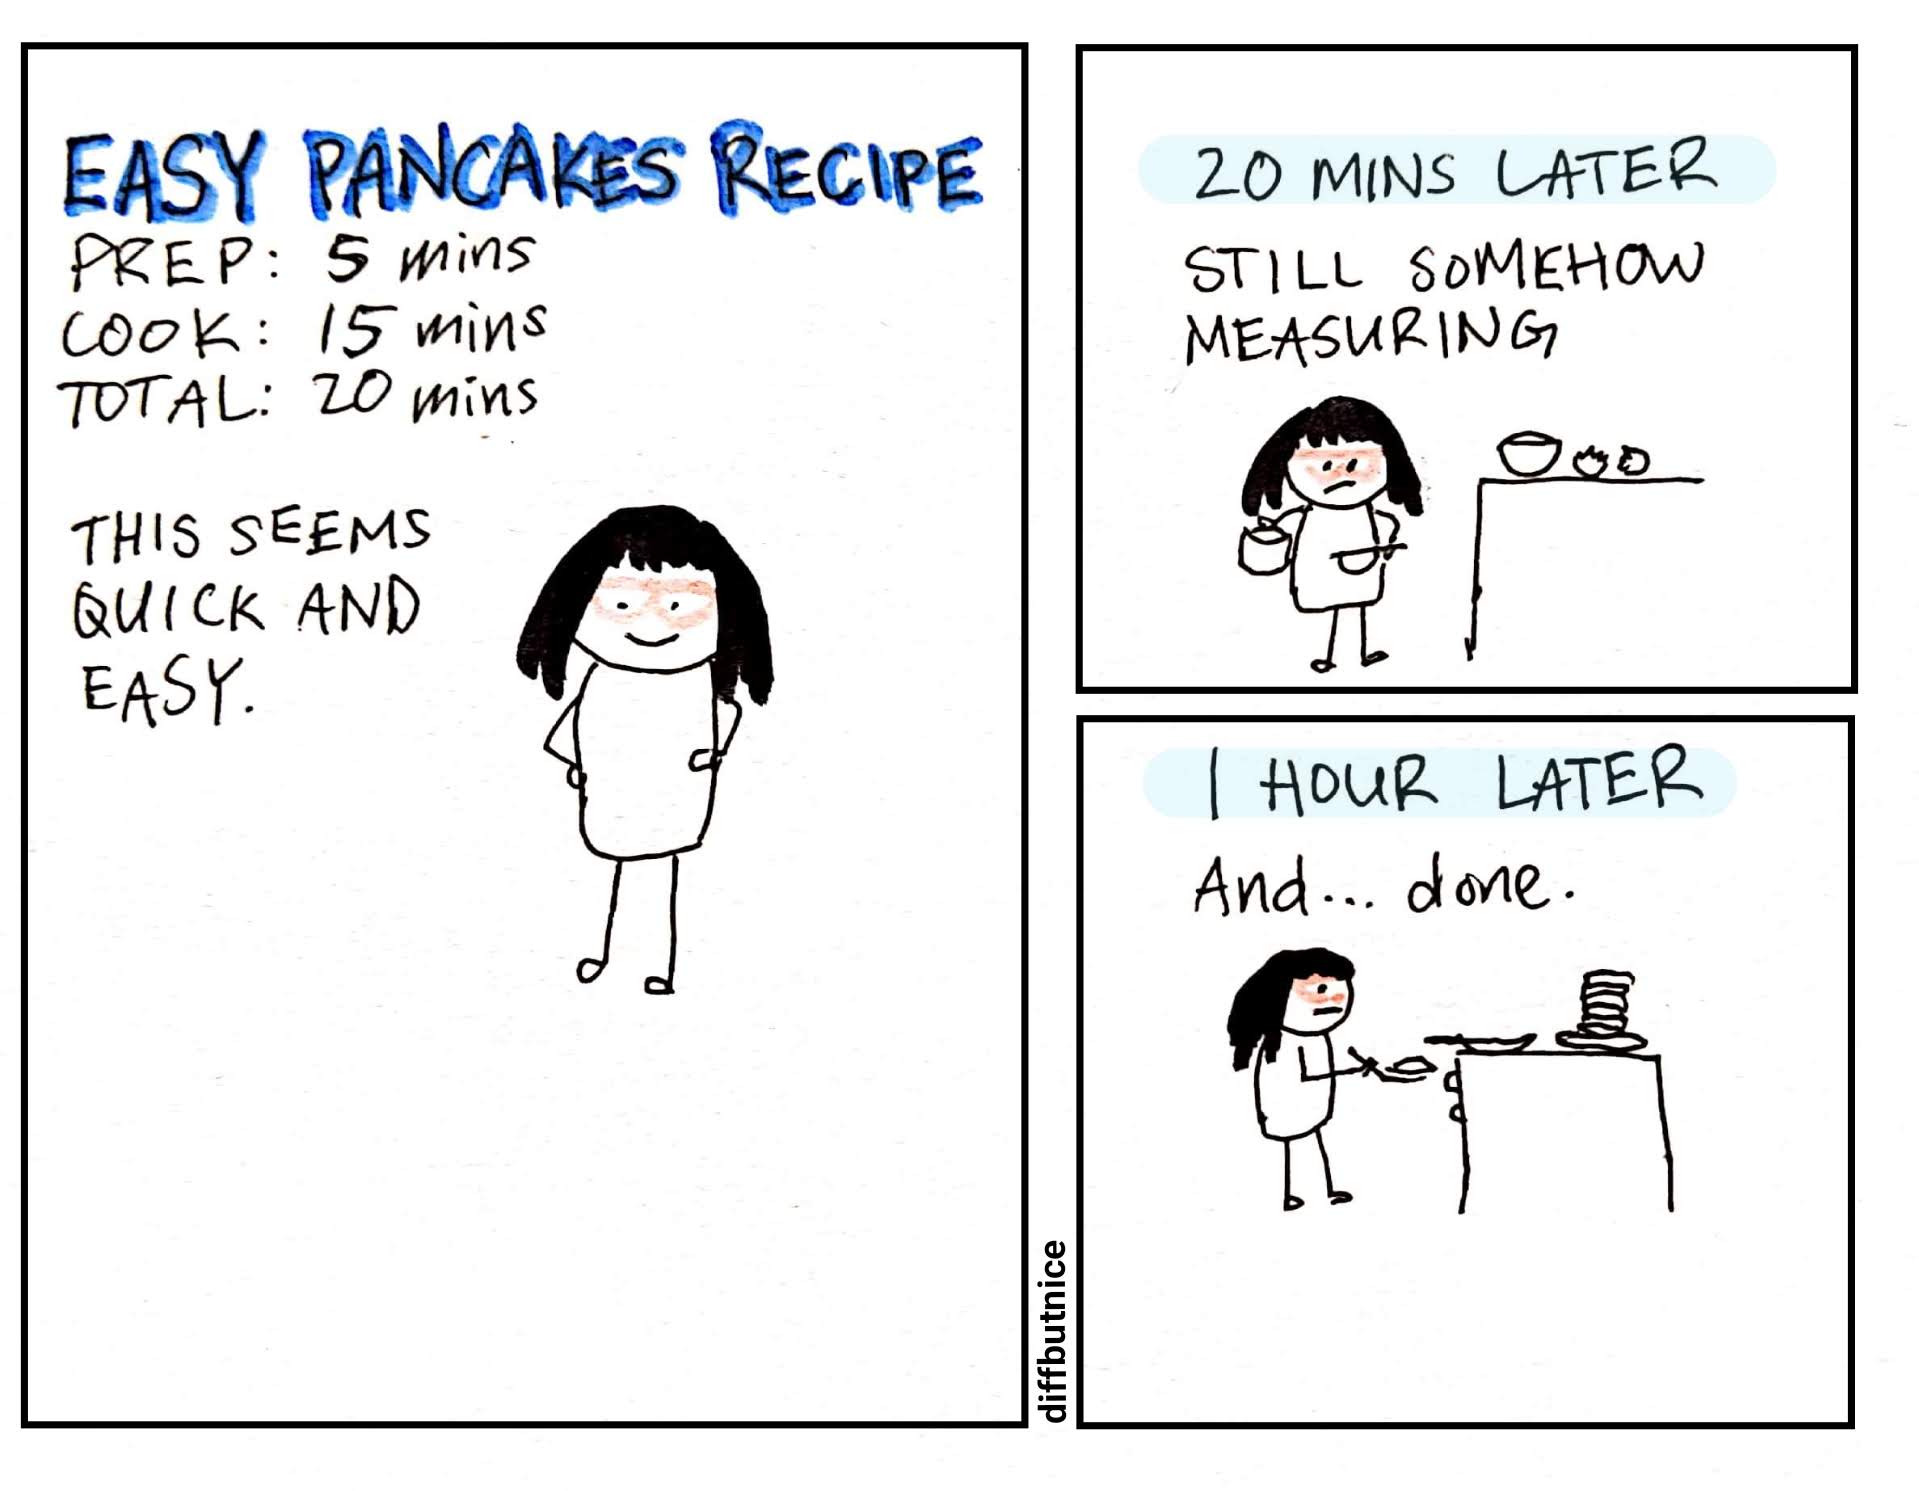 EASY PANCAKES RECIPE
PREP: 5 mins
COOK: 15 mins
TOTAL: 20 mins
THIS SEEMS
QUICK AND
EASY.
20 MINS LATER
STILL SOMEHOW
MEASURING
1 HOUR LATER
And... done.
diffbutnice